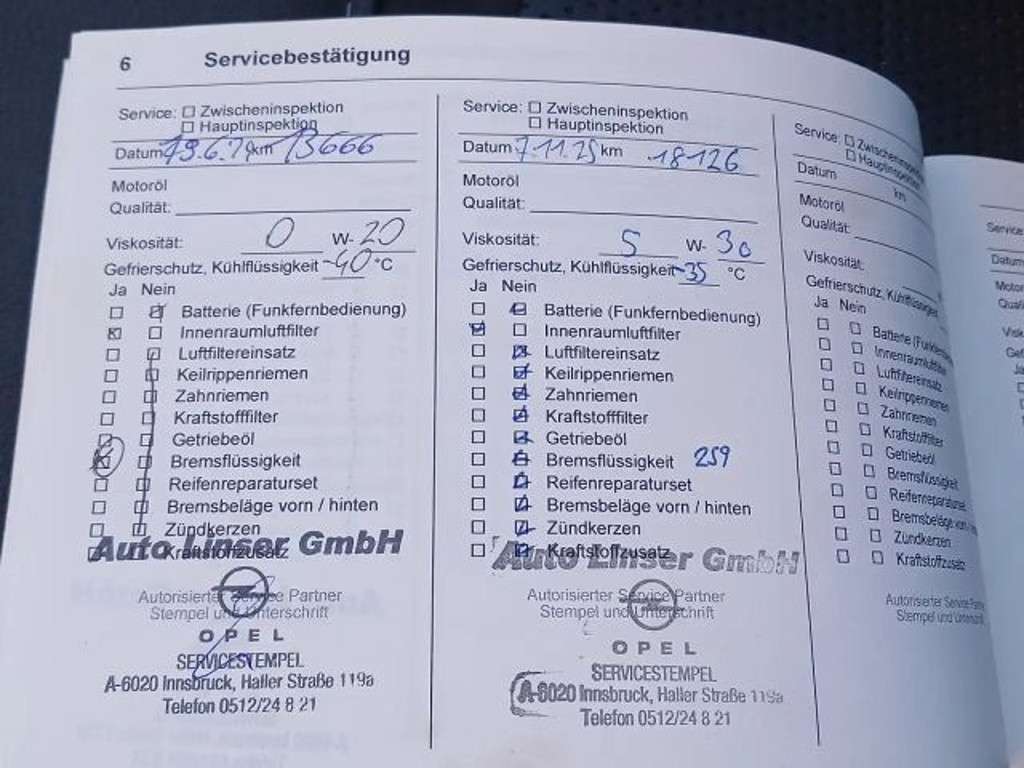 6 Servicebestätigung
Service: Zwischeninspektion
Hauptinspektion
Datum 19.6. km 13666
Motoröl
Qualität:
Viskosität: 0 W- 20
Gefrierschutz, Kühlflüssigkeit -40 °C
Ja Nein
Batterie (Funkfernbedienung)
Innenraumluftfilter
Luftfiltereinsatz
Keilrippenriemen
Zahnriemen
Kraftstofffilter
Getriebeöl
Bremsflüssigkeit
Reifenreparaturset
Bremsbeläge vorn / hinten
Zündkerzen
Kraftstoffzusatz
Auto Linser GmbH
Autorisierter Service Partner
Stempel und Unterschrift
OPEL
SERVICESTEMPEL
A-6020 Innsbruck, Haller Straße 119a
Telefon 0512/24 8 21
Service: Zwischeninspektion
Hauptinspektion
Datum 7.11.25 km 18126
Motoröl
Qualität:
Viskosität: 5 W- 30
Gefrierschutz, Kühlflüssigkeit -35 °C
Ja Nein
Batterie (Funkfernbedienung)
Innenraumluftfilter
Luftfiltereinsatz
Keilrippenriemen
Zahnriemen
Kraftstofffilter
Getriebeöl
Bremsflüssigkeit 259
Reifenreparaturset
Bremsbeläge vorn / hinten
Zündkerzen
Kraftstoffzusatz
Auto Linser GmbH
Autorisierter Service Partner
Stempel und Unterschrift
OPEL
SERVICESTEMPEL
A-6020 Innsbruck, Haller Straße 119a
Telefon 0512/24 8 21
Service: Zwischeninspektion
Hauptinspektion
Datum km
Motoröl
Qualität:
Viskosität:
Gefrierschutz, Kühlflüssigkeit
Ja Nein
Batterie (Funkfernbedienung
Innenraumluftfilter
Luftfiltereinsatz
Keilrippenriemen
Zahnriemen
Kraftstofffilter
Getriebeöl
Bremsflüssigkeit
Reifenreparaturset
Bremsbeläge vorn
Zündkerzen
Kraftstoffzusatz
Autorisierter Service Partner
Stempel und Unterschrift
Service
Datum